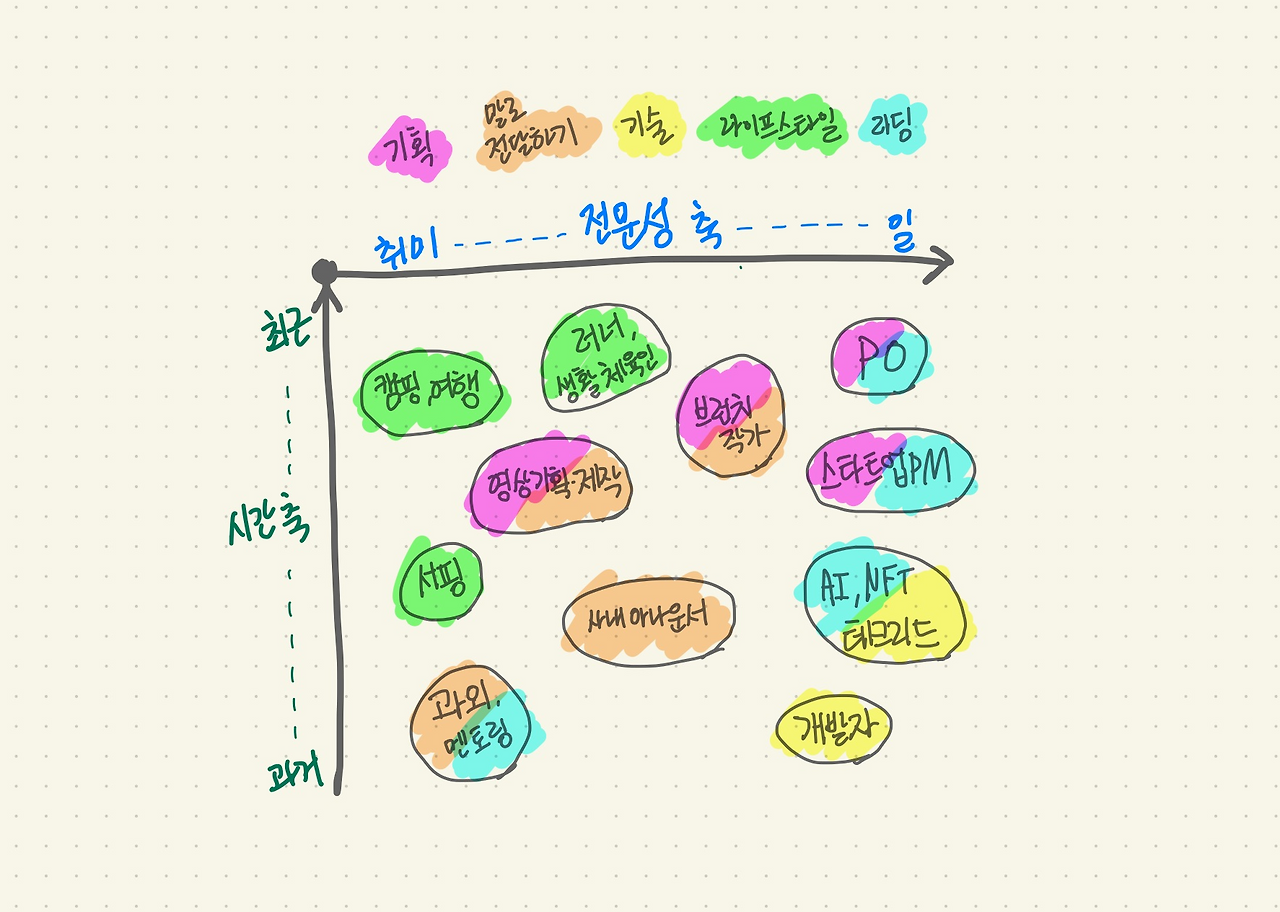 기획
말로
전달하기
기술
라이프스타일
리딩
취이 ----- 전문성 축 ------ 일
최근
시간 축
과거
러너,
생활체육인
PO
캠핑,여행
브런치
작가
영상기획·제작
스타트업PM
서핑
AI, NFT
테크리드
사내아나운서
과외,
멘토링
개발자